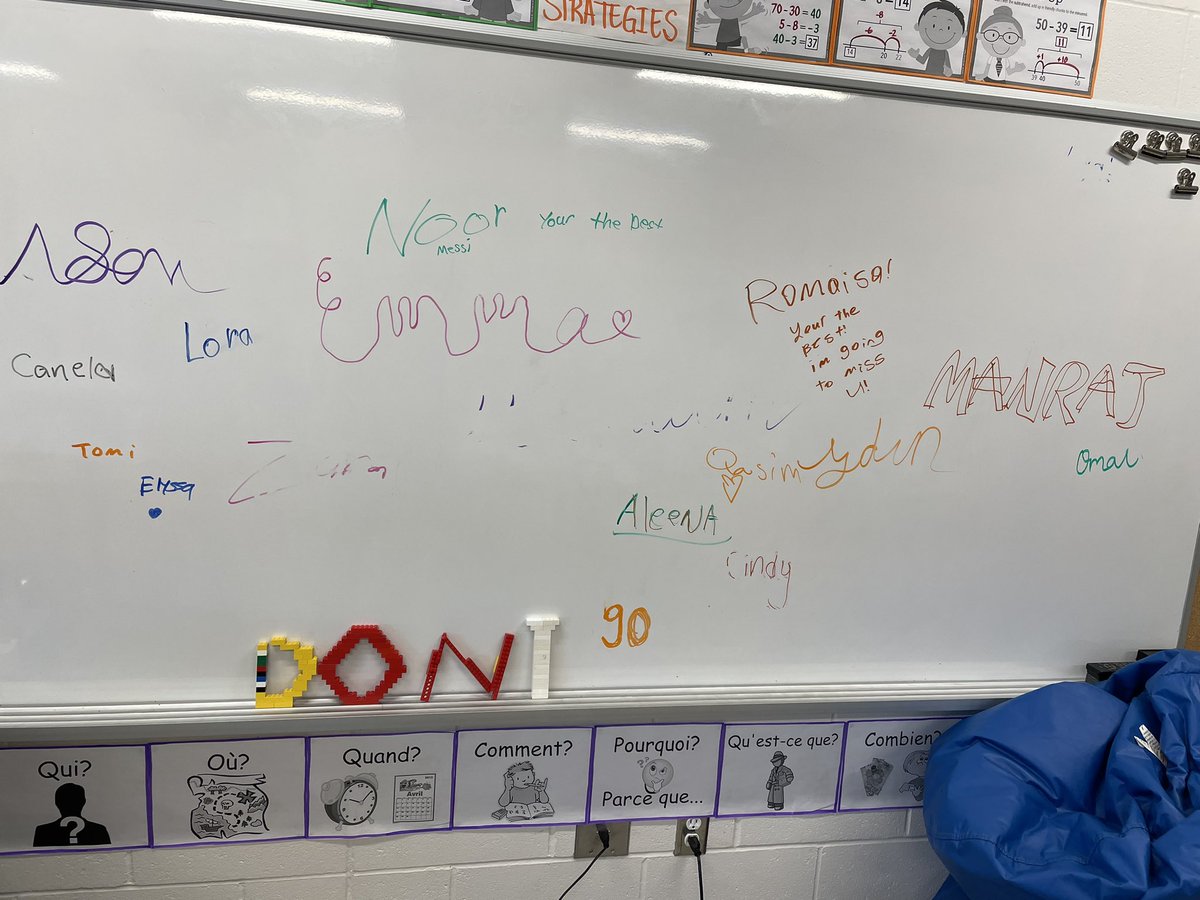 STRATEGIES
70-30=40
5-8=-3
40-3=37
14
-8
-6
-2
14 20 22
50-39=11
11
+1 +10
39 40 50
Noor Your the best
Messi
Emma
Lora
Canela
Romaisa!
Your the
BEST!
im going
to miss
U!
MANRAJ
Tomi
Qasim
Omar
Aleena
Cindy
90
DONI
Qui?
Où?
Quand?
Avril
Comment?
Pourquoi?
Parce que...
Qu'est-ce que?
Combien?